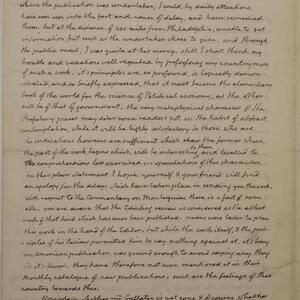 where the publication was undertaken, I could, by daily attentions
have seen into the fact and cause of delay, and have remedied
them. but at the distance of 300 miles from Philadelphia, unable to get
information but such as the undertaker chose to give, and through
the public mail, I was quite at his mercy. still I shall think my
trouble and vexations well requited by professing my country man
of such a work. it's principles are so profound, so logically demon-
strated, and so briefly expressed, that it must become the elementary
book of the world for the science of Political economy, as the other
will be of that of government. the very metaphysical character of the
Prefatory pieces may deter some readers not in the habit of abstract
contemplation, while it will be highly satisfactory to those who are
the indications however are sufficient which shew the former where
the part of the work begins which will be interesting and level to
the comprehensions less exercised in speculations of this character
in this plain statement I hope yourself & your friend will find
an apology for the delays which have taken place in sending you this work.
with respect to the Commentary on Montesquieu, there is a fact of some
note. you are aware that the Edinburg review is considered as the ablest
work of that kind which has ever been published. means were taken to place
this work in the hand of the Editor. but while the work itself, & the prin-
ciples of his Review permitted him to say nothing against it, it's being
an American publication was ground enough to avoid saying any thing
in it's favor. they have therefore not even mentioned it in their
monthly catalogue of new publications. such are the feelings of that
country towards this.
whether mr Gallatin is yet gone & of course whether